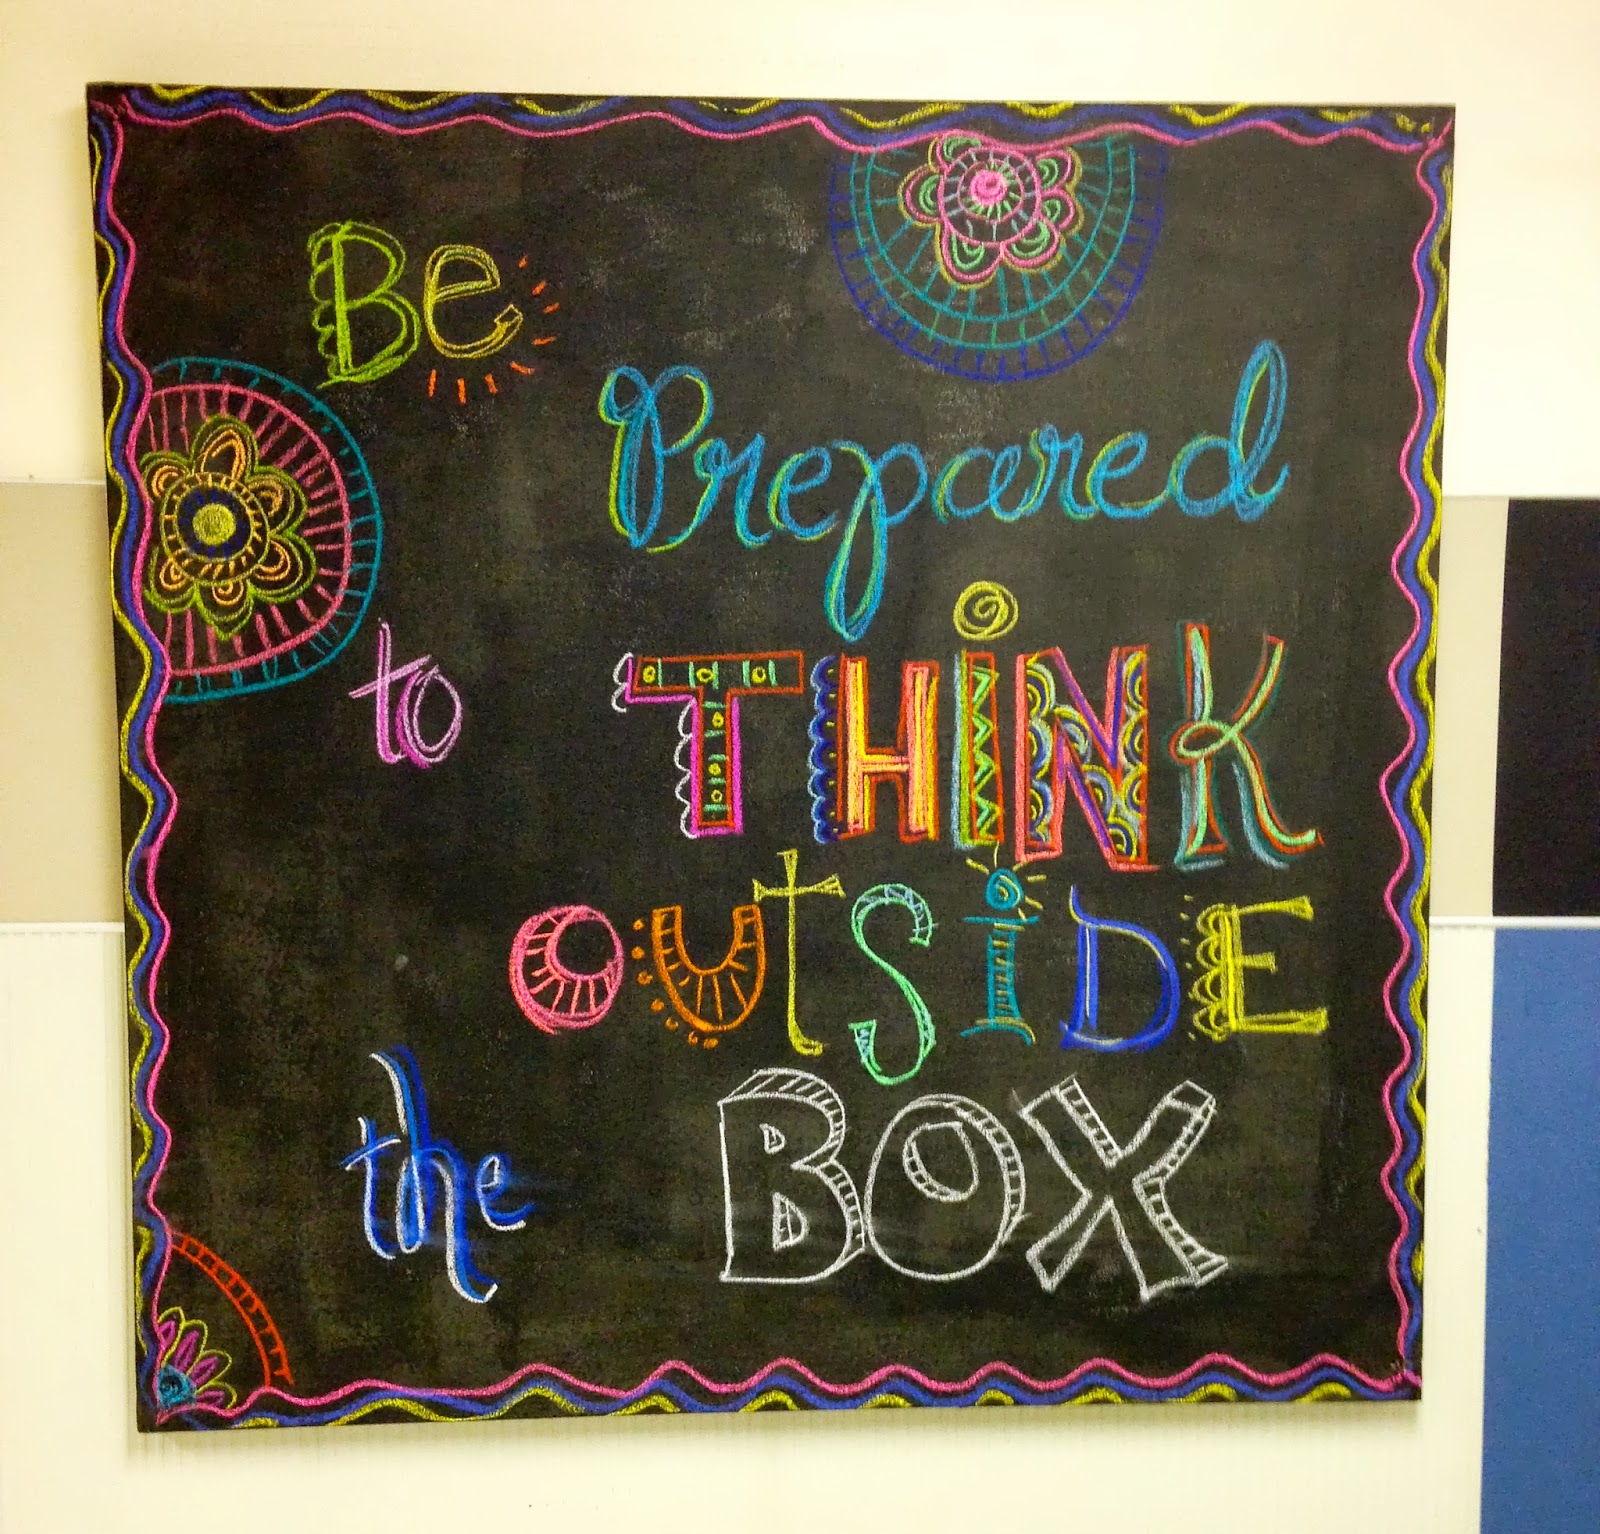 Be
Prepared
to THiNK
OUtSiDE
the BOX